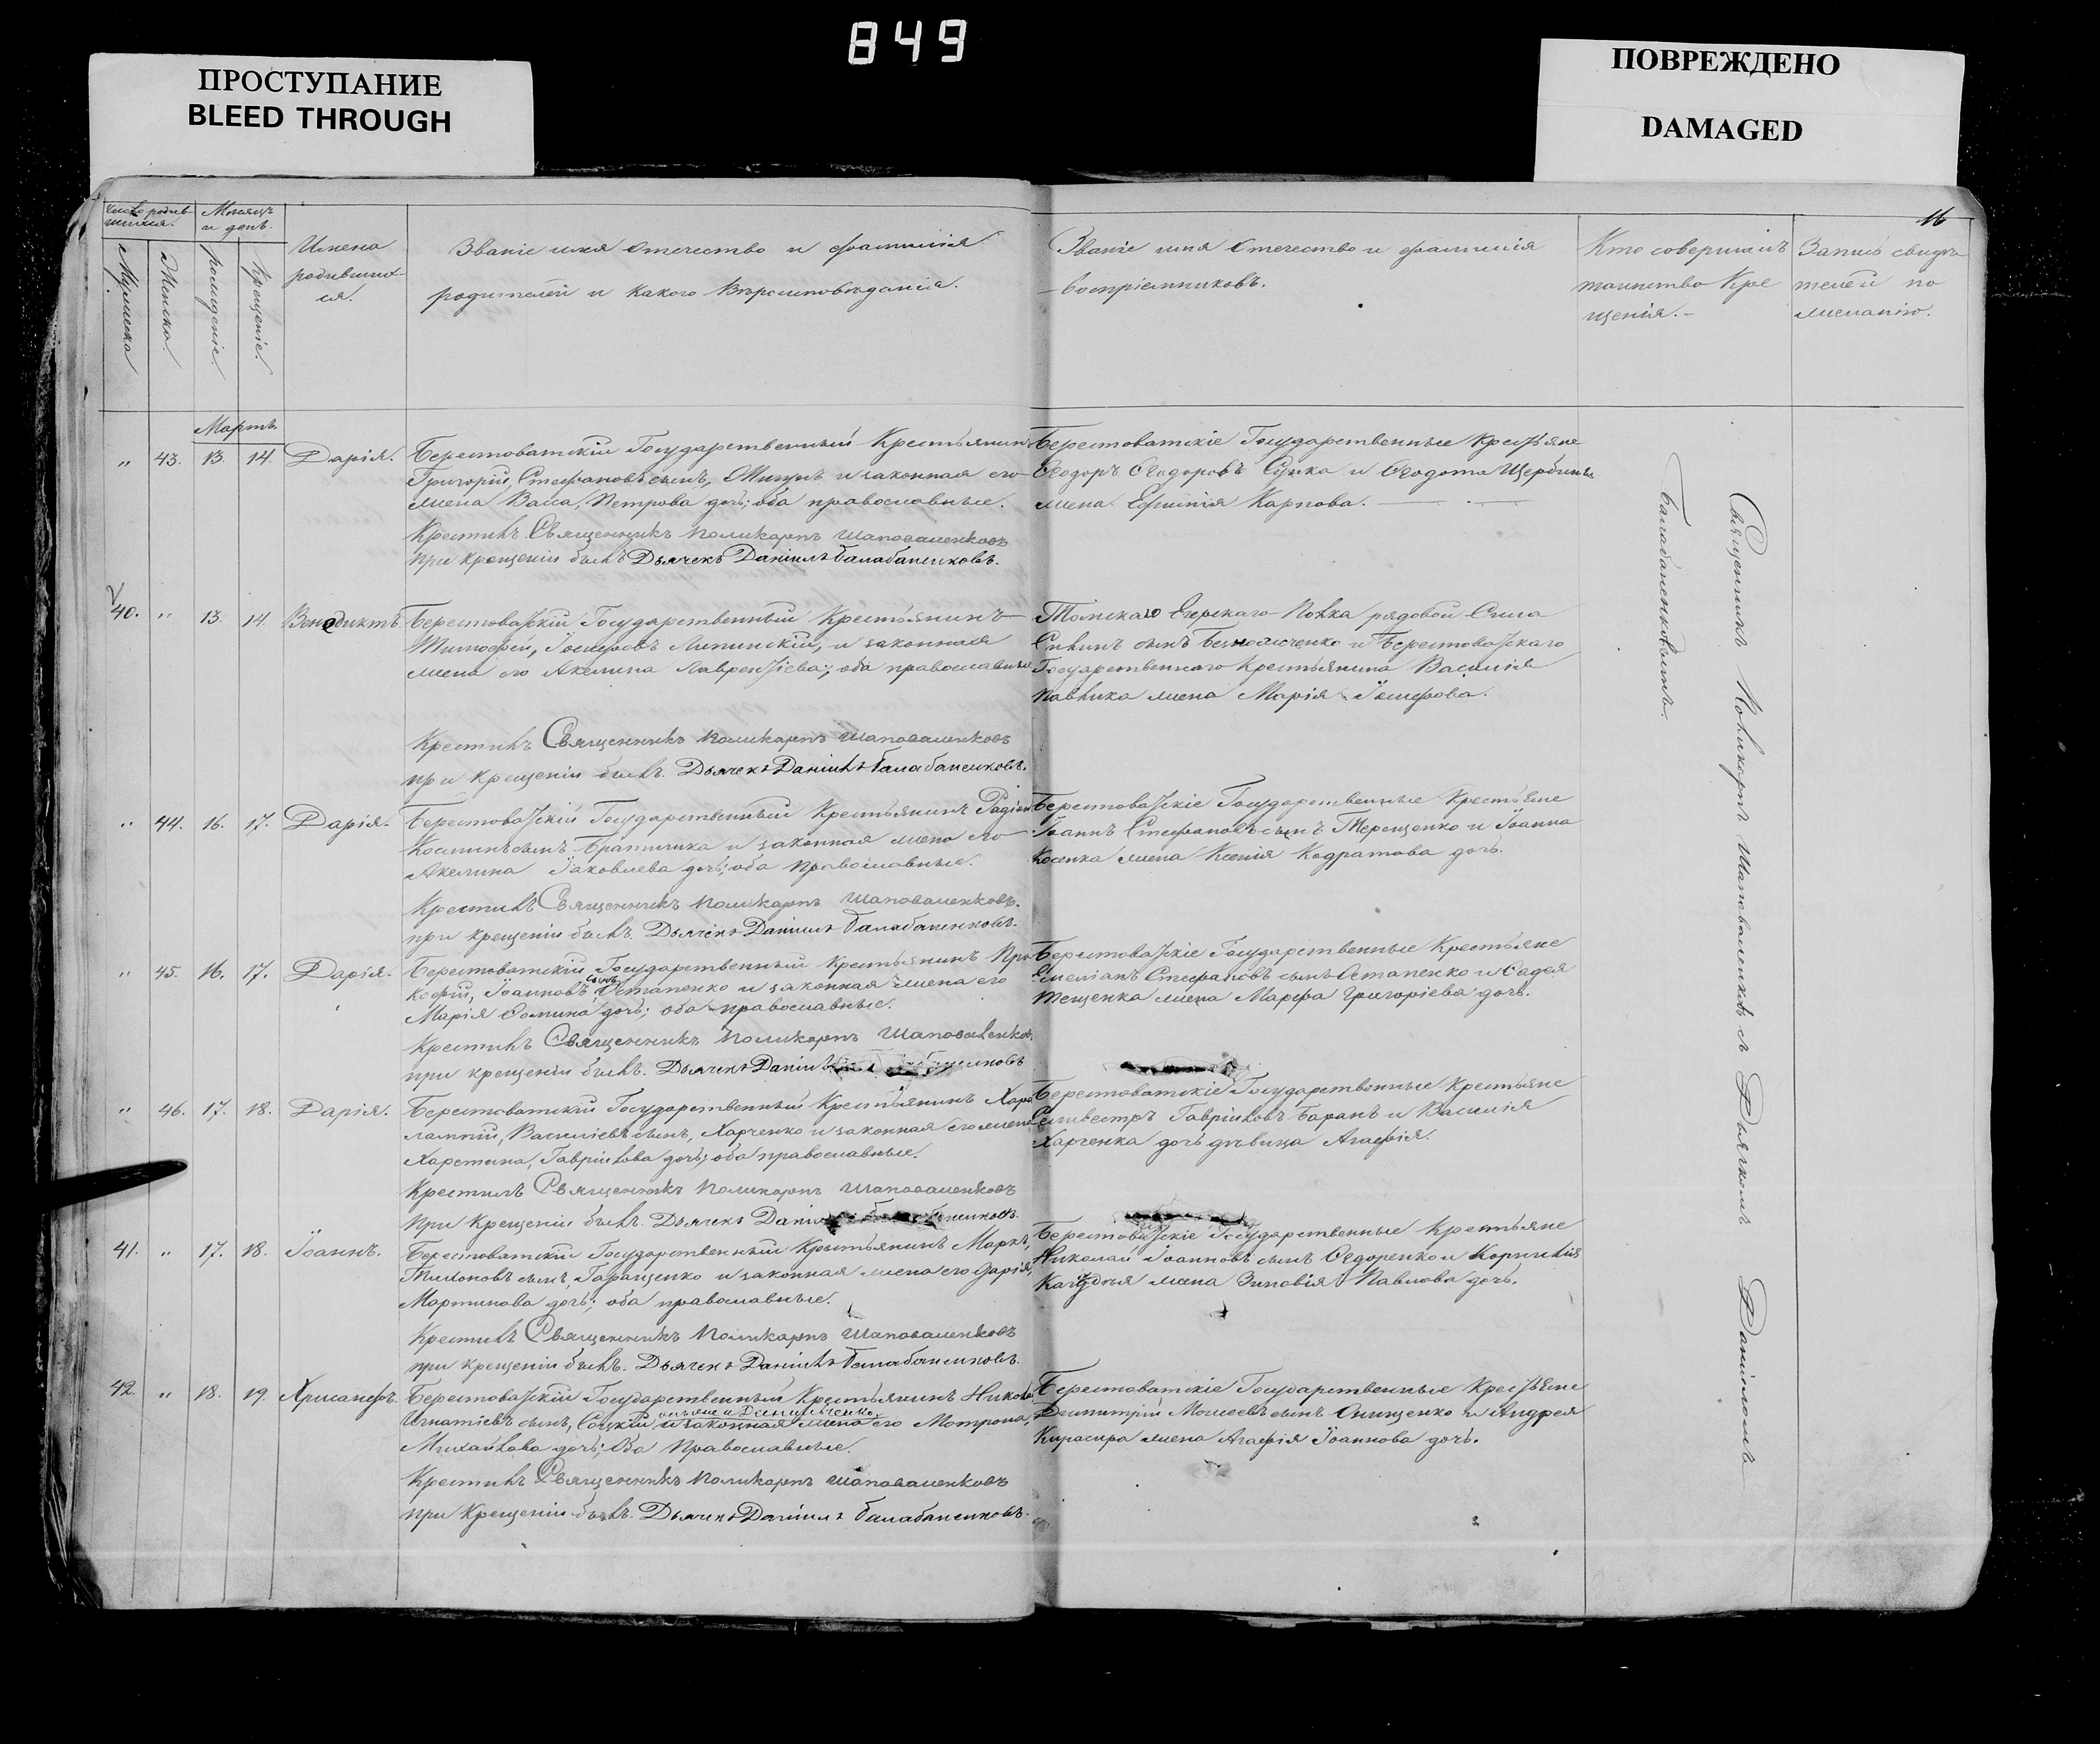 849
ПРОСТУПАНИЕ
BLEED THROUGH
ПОВРЕЖДЕНО
DAMAGED
16
Число родив-
шихся.
Мужеска
Женска.
Месяцъ
и день.
рожденіе.
крещеніе.
Имена
родившихъ
ся.
Званіе имя отечество и фамилія
родителей и какого Вѣроисповѣданія.
Званіе имя отечество и фамилія
воспріемниковъ.
Кто совершалъ
таинство Кре
щенія.-
Запись свидѣ
телей по
желанію.
Мартъ
" 43. 13. 14. Дарія.
Берестоватскій Государственный Крестьянинъ
Григорій, Стефановъ сынъ, и законная его
жена Васса, Петрова дочь; оба православные.
Крестилъ Священникъ Поликарпъ Шаповаленковъ
при крещеніи былъ Дьячекъ Даніилъ Балабаненковъ.
Берестоватскіе Государственные Крестьяне
Ѳеодоръ Ѳеодоровъ Сушка и Ѳеодота Щербины
жена Ефимія Карпова.
40. " 13. 14. Венедиктъ.
Берестоватскій Государственный Крестьянинъ
Тимофей, Іосифовъ Липинскій, и законная
жена его Акелина Лаврентіева; оба православные
Крестилъ Священникъ Поликарпъ Шаповаленковъ
при крещеніи былъ. Дьячекъ Даніилъ Балабаненковъ.
Томскаго Егерскаго Полка рядовой Сила
сынъ и Берестоватскаго
Государственнаго Крестьянина Василія
Павлика жена Марія Іосифова.
" 44. 16. 17. Дарія.
Берестоватскій Государственный Крестьянинъ Радіонъ
Косминъ сынъ Братишка и законная жена его
Акелина Іаковлева дочь; оба православные.
Крестилъ Священникъ Поликарпъ Шаповаленковъ.
при крещеніи былъ. Дьячекъ Даніилъ Балабаненковъ.
Берестоватскіе Государственные Крестьяне
Іоаннъ Стефановъ сынъ Терещенко и Іоанна
Косенка жена Ксенія Кодратова дочь.
" 45. 16. 17. Дарія.
Берестоватскій Государственный Крестьянинъ Про
кофій, Іоанновъ сынъ Остапенко и законная жена его
Марія Ѳомина дочь; оба православные.
Крестилъ Священникъ Поликарпъ Шаповаленковъ
при крещеніи былъ. Дьячекъ Даніилъ Балабаненковъ
Берестоватскіе Государственные Крестьяне
Емеліанъ Стефановъ сынъ Остапенко и Фадея
Тещенка жена Марфа Григоріева дочь.
" 46. 17. 18. Дарія.
Берестоватскій Государственный Крестьянинъ Хара
лампій, Василіевъ сынъ, Харченко и законная его жена
Харетина, Гавріилова дочь; оба православные.
Крестилъ Священникъ Поликарпъ Шаповаленковъ
при крещеніи былъ. Дьячекъ Даніилъ Балабаненковъ.
Берестоватскіе Государственные Крестьяне
Селивестръ Гавріиловъ Баранъ и Василія
Харченка дочь дѣвица Агафія.
41. " 17. 18. Іоаннъ.
Берестоватскій Государственный Крестьянинъ Маркъ,
Тихоновъ сынъ, Гаращенко и законная жена его Дарія,
Мартинова дочь; оба православные.
Крестилъ Священникъ Поликарпъ Шаповаленковъ
при крещеніи былъ. Дьячекъ Даніилъ Балабаненковъ.
Берестоватскіе Государственные Крестьяне
Николай Іоанновъ сынъ Ѳедоренко и Корнилія
жена Зиновія Павлова дочь.
42. " 18. 19. Хрисанфъ.
Берестоватскій Государственный Крестьянинъ Николай
Игнатіевъ сынъ, и законная жена его Мотрона,
Михайлова дочь; оба Православные.
Крестилъ Священникъ Поликарпъ Шаповаленковъ
при Крещеніи былъ. Дьячекъ Даніилъ Балабаненковъ.
Берестоватскіе Государственные Крестьяне
Димитрій Моисеевъ сынъ Онищенко и Андрея
Кирасира жена Агафія Іоаннова дочь.
Священникъ Поликарпъ Шаповаленковъ съ Дьячкомъ Даніиломъ
Балабаненковымъ.